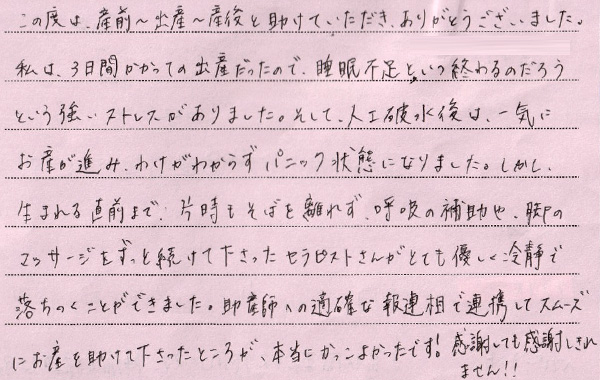 この度は、産前～出産～産後と助けていただき、ありがとうございました。
私は、3日間かかっての出産だったので、睡眠不足といつ終わるのだろう
という強いストレスがありました。そして、人工破水後は、一気に
お産が進み、わけがわからずパニック状態になりました。しかし、
生まれる直前まで、片時もそばを離れず、呼吸の補助や、脚の
マッサージをずっと続けて下さったセラピストさんがとても優しく冷静で
落ちつくことができました。助産師への適確な報連相で連携してスムーズ
にお産を助けて下さったところが、本当にかっこよかったです！感謝しても感謝しきれ
ません！！